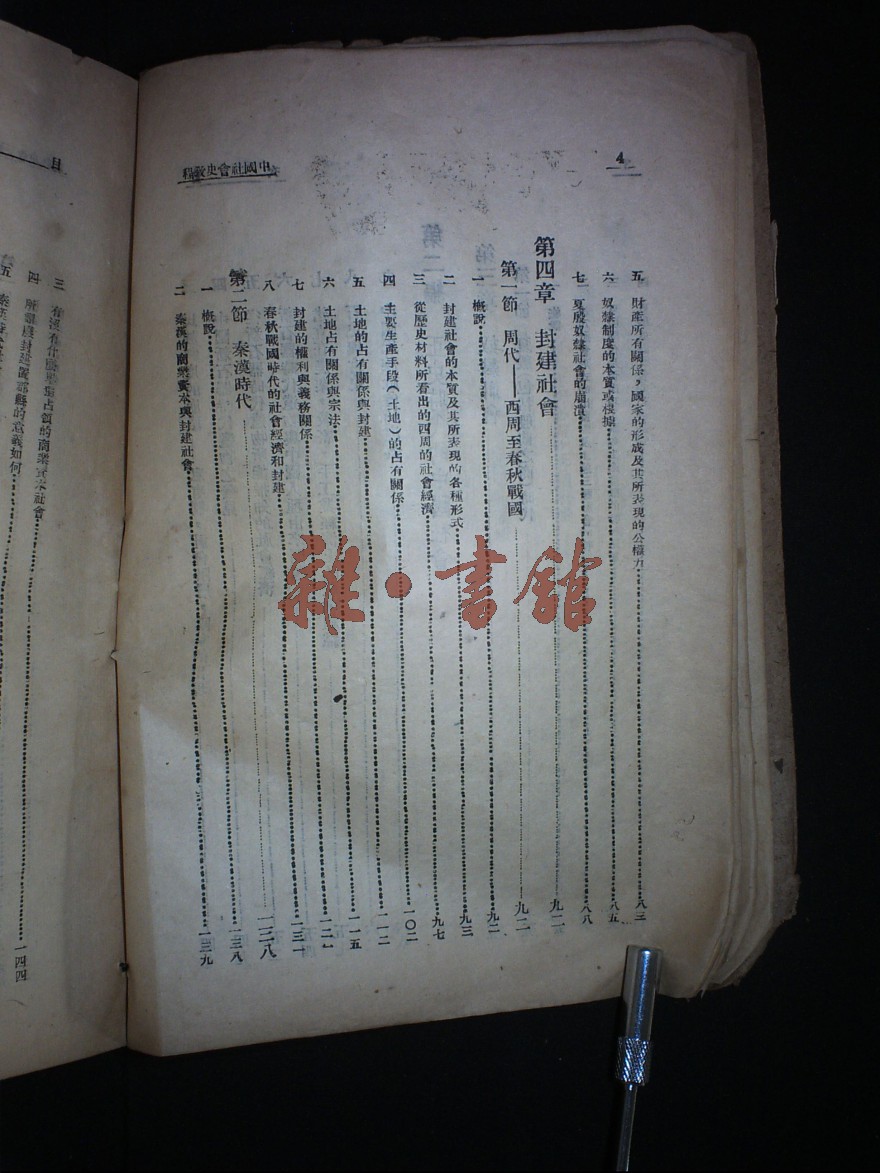 4
中國社會史教程
五 財產所有關係，國家的形成及其所表現的公權力……八三
六 奴隸制度的本質或根據……八五
七 夏殷奴隸社會的崩潰……八八
第四章 封建社會……九二
第一節 周代——西周至春秋戰國……九二
一 概說……九二
二 封建社會的本質及其所表現的各種形式……九三
三 從歷史材料所看出的西周的社會經濟……九七
四 主要生產手段（土地）的占有關係……一〇二
五 土地的占有關係與封建……一一二
六 土地占有關係與宗法……一一五
七 封建的權利與義務關係……一二一
八 春秋戰國時代的社會經濟和封建……一三一
第二節 秦漢時代……一三八
一 概說……一三八
二 秦漢的商業資本與封建社會……一三九
目
三 有沒有什麼占領的商業資本社會
四 所謂廢封建置郡縣的意義如何……一四四
五
雜·書館